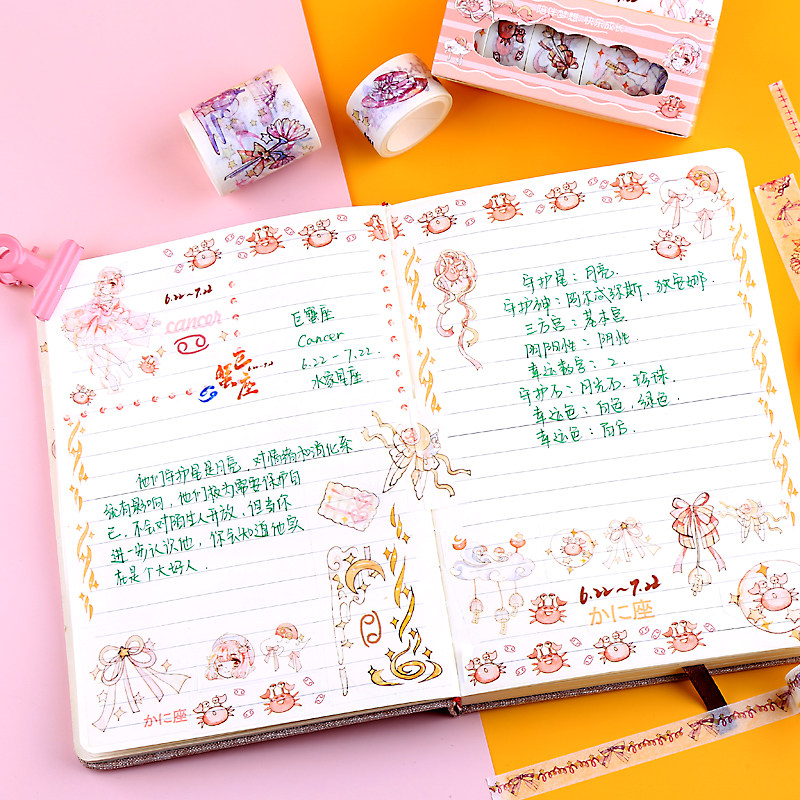 陪伴梦想 快乐成长
6.22~7.22
cancer
巨蟹座
巨蟹座
Cancer
6.22-7.22.
水象星座
他们守护星是月亮，对情绪和消化系
统有影响，他们极为需要保护自
己，不会对陌生人开放，但当你
进一步认识他，你会知道他实
在是个大好人．
かに座
守护星：月亮．
守护神：阿尔忒弥斯．狄安娜．
三方宫：基本宫
阴阳性：阴性
幸运数字：2．
守护石：月光石．珍珠
幸运色：白色．绿色．
幸运色：白色．
6.22~7.22
かに座